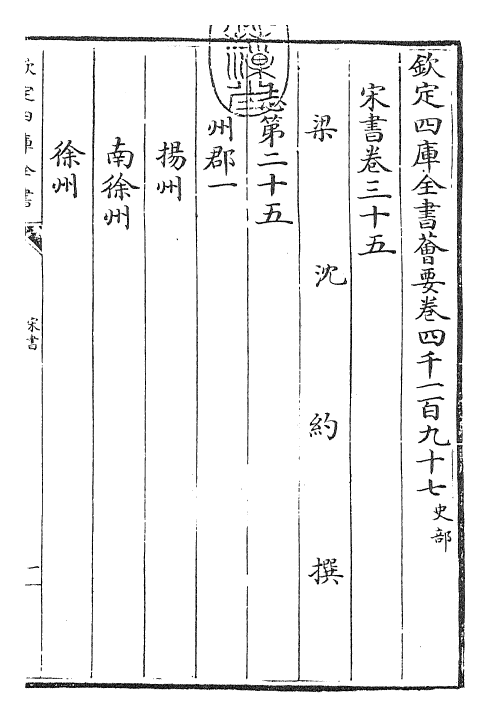 欽定四庫全書薈要卷四千一百九十七史部
宋書卷三十五
梁沈約撰
志第二十五
州郡一
揚州
南徐州
徐州
欽定四庫全書
宋書
一